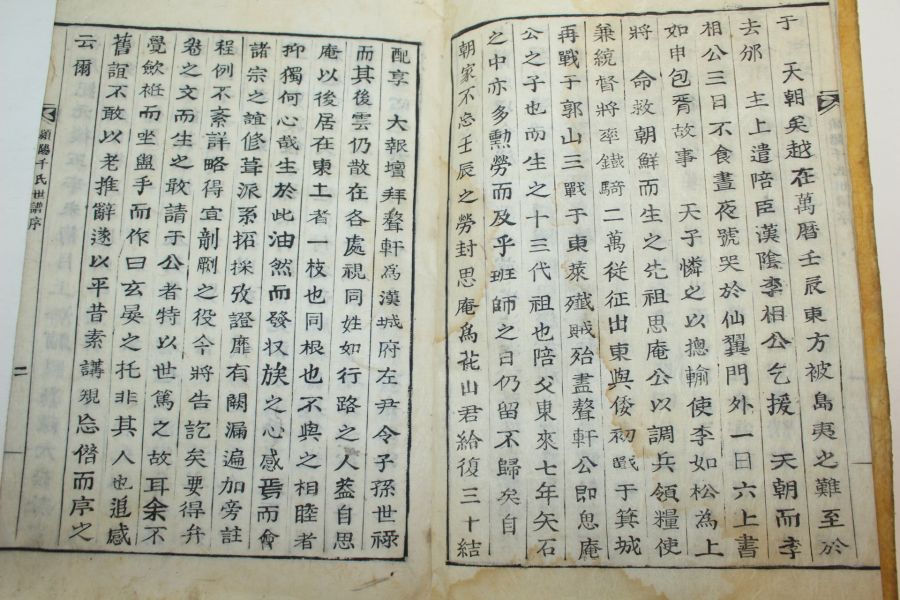 于 天朝矣越在萬曆壬辰東方被島夷之難至於
去邠 主上遣陪臣漢陰李相公乞援 天朝而李
相公三日不食晝夜號哭於仙翼門外一日六上書
如申包胥故事 天子憐之以摠輸使李如松為上
將 命救朝鮮而生之先祖思庵公以調兵領糧使
兼統督將率鐵騎二萬從征出東與倭初戰于箕城
再戰于郭山三戰于東萊殲賊殆盡聲軒公即思庵
公之子也而生之十三代祖也陪父東來七年矢石
之中亦多勳勞而及乎班師之日仍留不歸矣自
朝家不忘壬辰之勞封思庵為花山君給復三十結
配享 大報壇拜聲軒為漢城府左尹令子孫世祿
而其後雲仍散在各處視同姓如行路之人蓋自思
庵以後居在東土者一枝也同根也不與之相睦者
抑獨何心哉生於此油然而發収族之心感焉而會
諸宗之誼修葺派系拓採攷證靡有闕漏遍加旁註
程例不紊詳略得宜剞劂之役今將告訖矣要得弁
卷之文而生之敢請于公者特以世篤之故耳余不
覺欿袵而坐盥手而作曰玄晏之托非其人也追感
舊誼不敢以老推辭遂以平昔素講規忘僭而序之
云爾
潁陽千氏世譜序
二